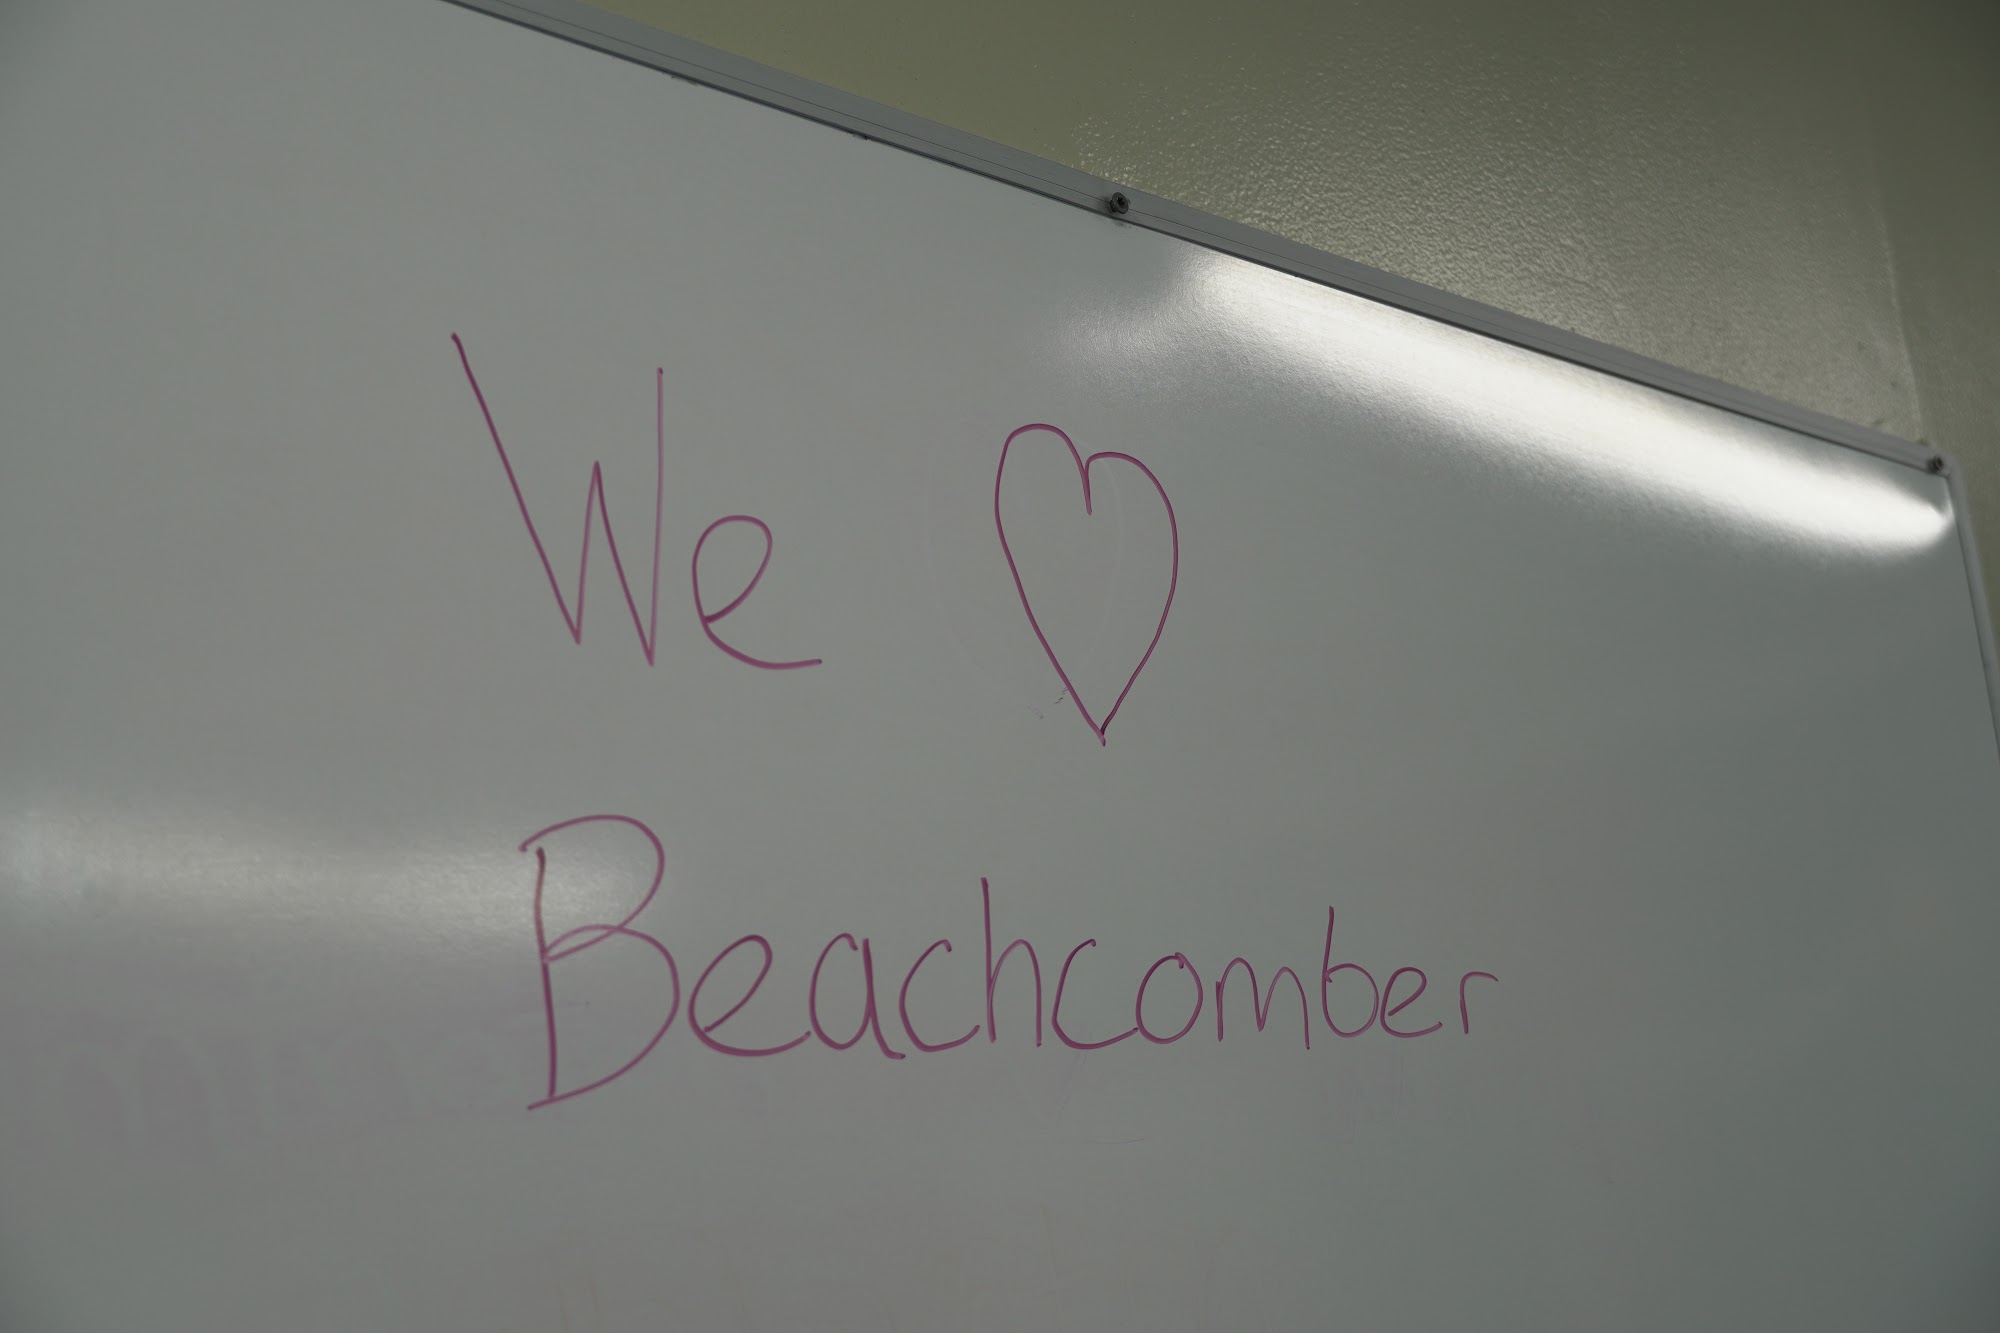 We ♡
Beachcomber